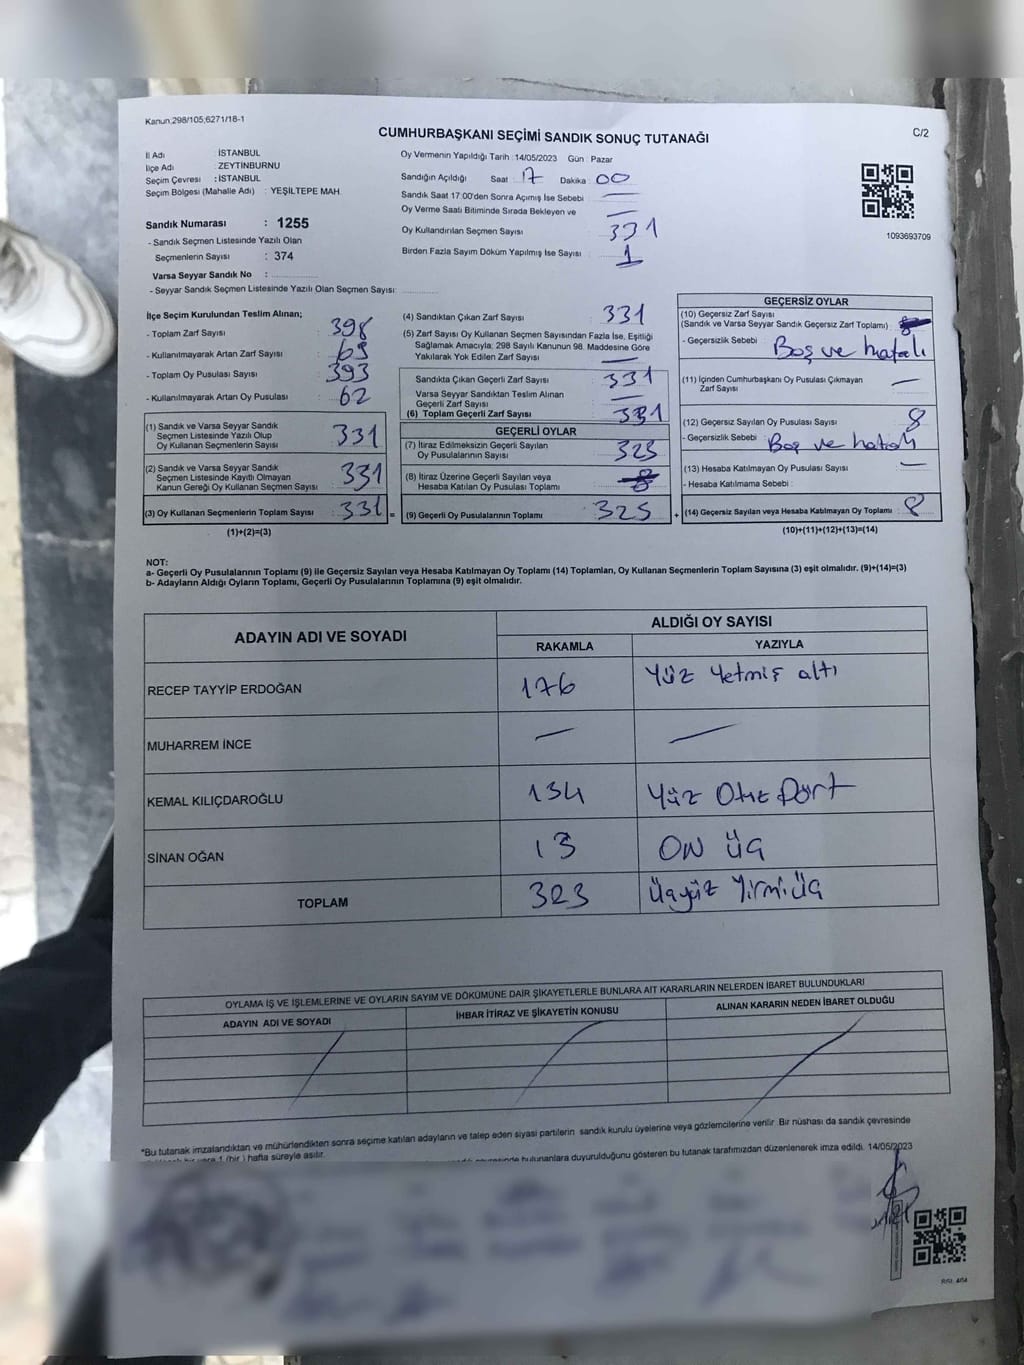 Kanun;298/105;6271/18-1
CUMHURBAŞKANI SEÇİMİ SANDIK SONUÇ TUTANAĞI
C/2
İl Adı : İSTANBUL
İlçe Adı : ZEYTİNBURNU
Seçim Çevresi : İSTANBUL
Seçim Bölgesi (Mahalle Adı) : YEŞİLTEPE MAH.
Sandık Numarası : 1255
- Sandık Seçmen Listesinde Yazılı Olan
Seçmenlerin Sayısı : 374
Varsa Seyyar Sandık No :
- Seyyar Sandık Seçmen Listesinde Yazılı Olan Seçmen Sayısı:
Oy Vermenin Yapıldığı Tarih :14/05/2023 Gün : Pazar
Sandığın Açıldığı Saat : 17 Dakika : 00
Sandık Saat 17:00'den Sonra Açımış İse Sebebi : —
Oy Verme Saati Bitiminde Sırada Bekleyen ve —
Oy Kullandırılan Seçmen Sayısı 331
Birden Fazla Sayım Döküm Yapılmış İse Sayısı : 1
1093693709
İlçe Seçim Kurulundan Teslim Alınan;
- Toplam Zarf Sayısı : 398
- Kullanılmayarak Artan Zarf Sayısı :
- Toplam Oy Pusulası Sayısı : 393
- Kullanılmayarak Artan Oy Pusulası : 62
(1) Sandık ve Varsa Seyyar Sandık
Seçmen Listesinde Yazılı Olup
Oy Kullanan Seçmenlerin Sayısı : 331
(2) Sandık ve Varsa Seyyar Sandık
Seçmen Listesinde Kayıtlı Olmayan
Kanun Gereği Oy Kullanan Seçmen Sayısı : 331
(3) Oy Kullanan Seçmenlerin Toplam Sayısı : 331 =
(1)+(2)=(3)
(4) Sandıktan Çıkan Zarf Sayısı : 331
(5) Zarf Sayısı Oy Kullanan Seçmen Sayısından Fazla İse, Eşitliği
Sağlamak Amacıyla; 298 Sayılı Kanunun 98. Maddesine Göre
Yakılarak Yok Edilen Zarf Sayısı : —
Sandıkta Çıkan Geçerli Zarf Sayısı : 331
Varsa Seyyar Sandıktan Teslim Alınan
Geçerli Zarf Sayısı : —
(6) Toplam Geçerli Zarf Sayısı : 331
GEÇERLİ OYLAR
(7) İtiraz Edilmeksizin Geçerli Sayılan
Oy Pusulalarının Sayısı : 323
(8) İtiraz Üzerine Geçerli Sayılan veya
Hesaba Katılan Oy Pusulası Toplamı :
(9) Geçerli Oy Pusulalarının Toplamı : 323 +
GEÇERSİZ OYLAR
(10) Geçersiz Zarf Sayısı
(Sandık ve Varsa Seyyar Sandık Geçersiz Zarf Toplamı) :
- Geçersizlik Sebebi : Boş ve hatalı
(11) İçinden Cumhurbaşkanı Oy Pusulası Çıkmayan
Zarf Sayısı : —
(12) Geçersiz Sayılan Oy Pusulası Sayısı : 8
- Geçersizlik Sebebi : Boş ve hatalı
(13) Hesaba Katılmayan Oy Pusulası Sayısı : —
- Hesaba Katılmama Sebebi :
(14) Geçersiz Sayılan veya Hesaba Katılmayan Oy Toplamı : 8
(10)+(11)+(12)+(13)=(14)
NOT:
a- Geçerli Oy Pusulalarının Toplamı (9) ile Geçersiz Sayılan veya Hesaba Katılmayan Oy Toplamı (14) Toplamları, Oy Kullanan Seçmenlerin Toplam Sayısına (3) eşit olmalıdır. (9)+(14)=(3)
b- Adayların Aldığı Oyların Toplamı, Geçerli Oy Pusulalarının Toplamına (9) eşit olmalıdır.
ADAYIN ADI VE SOYADI
ALDIĞI OY SAYISI
RAKAMLA YAZIYLA
RECEP TAYYİP ERDOĞAN 176 Yüz Yetmiş altı
MUHARREM İNCE — —
KEMAL KILIÇDAROĞLU 134 Yüz Otuz Dört
SİNAN OĞAN 13 ON üç
TOPLAM 323 Üçyüz Yirmi Üç
OYLAMA İŞ VE İŞLEMLERİNE VE OYLARIN SAYIM VE DÖKÜMÜNE DAİR ŞİKAYETLERLE BUNLARA AİT KARARLARIN NELERDEN İBARET BULUNDUKLARI
ADAYIN ADI VE SOYADI İHBAR İTİRAZ VE ŞİKAYETİN KONUSU ALINAN KARARIN NEDEN İBARET OLDUĞU
*Bu tutanak imzalandıktan ve mühürlendikten sonra seçime katılan adayların ve talep eden siyasi partilerin sandık kurulu üyelerine veya gözlemcilerine verilir. Bir nüshası da sandık çevresinde
1 (bir ) hafta süreyle asılır. bulunanlara duyurulduğunu gösteren bu tutanak tarafımızdan düzenlenerek imza edildi. 14/05/2023